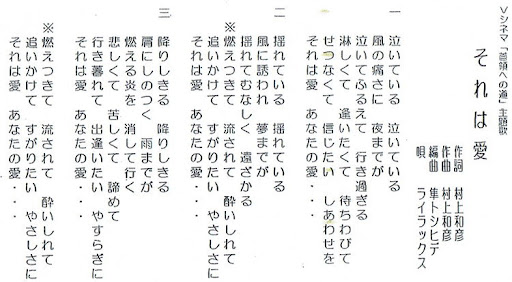 Vシネマ「首領への道」主題歌
それは愛
作詞 村上和彦
作曲 村上和彦
編曲 隼トシヒデ
唄 ライラックス
一
泣いている 泣いている
風の痛さに 夜までが
泣いてふるえて 行き過ぎる
淋しくて 逢いたくて 待ちわびて
せつなくて 信じたい しあわせを
それは愛 あなたの愛・・・
二
揺れている 揺れている
風に誘われ 夢までが
揺れてむなしく 遠ざかる
※燃えつきて 流されて 酔いしれて
追いかけて すがりたい やさしさに
それは愛 あなたの愛・・・
三
降りしきる 降りしきる
肩にしのつく 雨までが
燃える炎を 消して行く
悲しくて 苦しくて 諦めて
行き暮れて 出逢いたい やすらぎに
それは愛 あなたの愛・・・
※燃えつきて 流されて 酔いしれて
追いかけて すがりたい やさしさに
それは愛 あなたの愛・・・